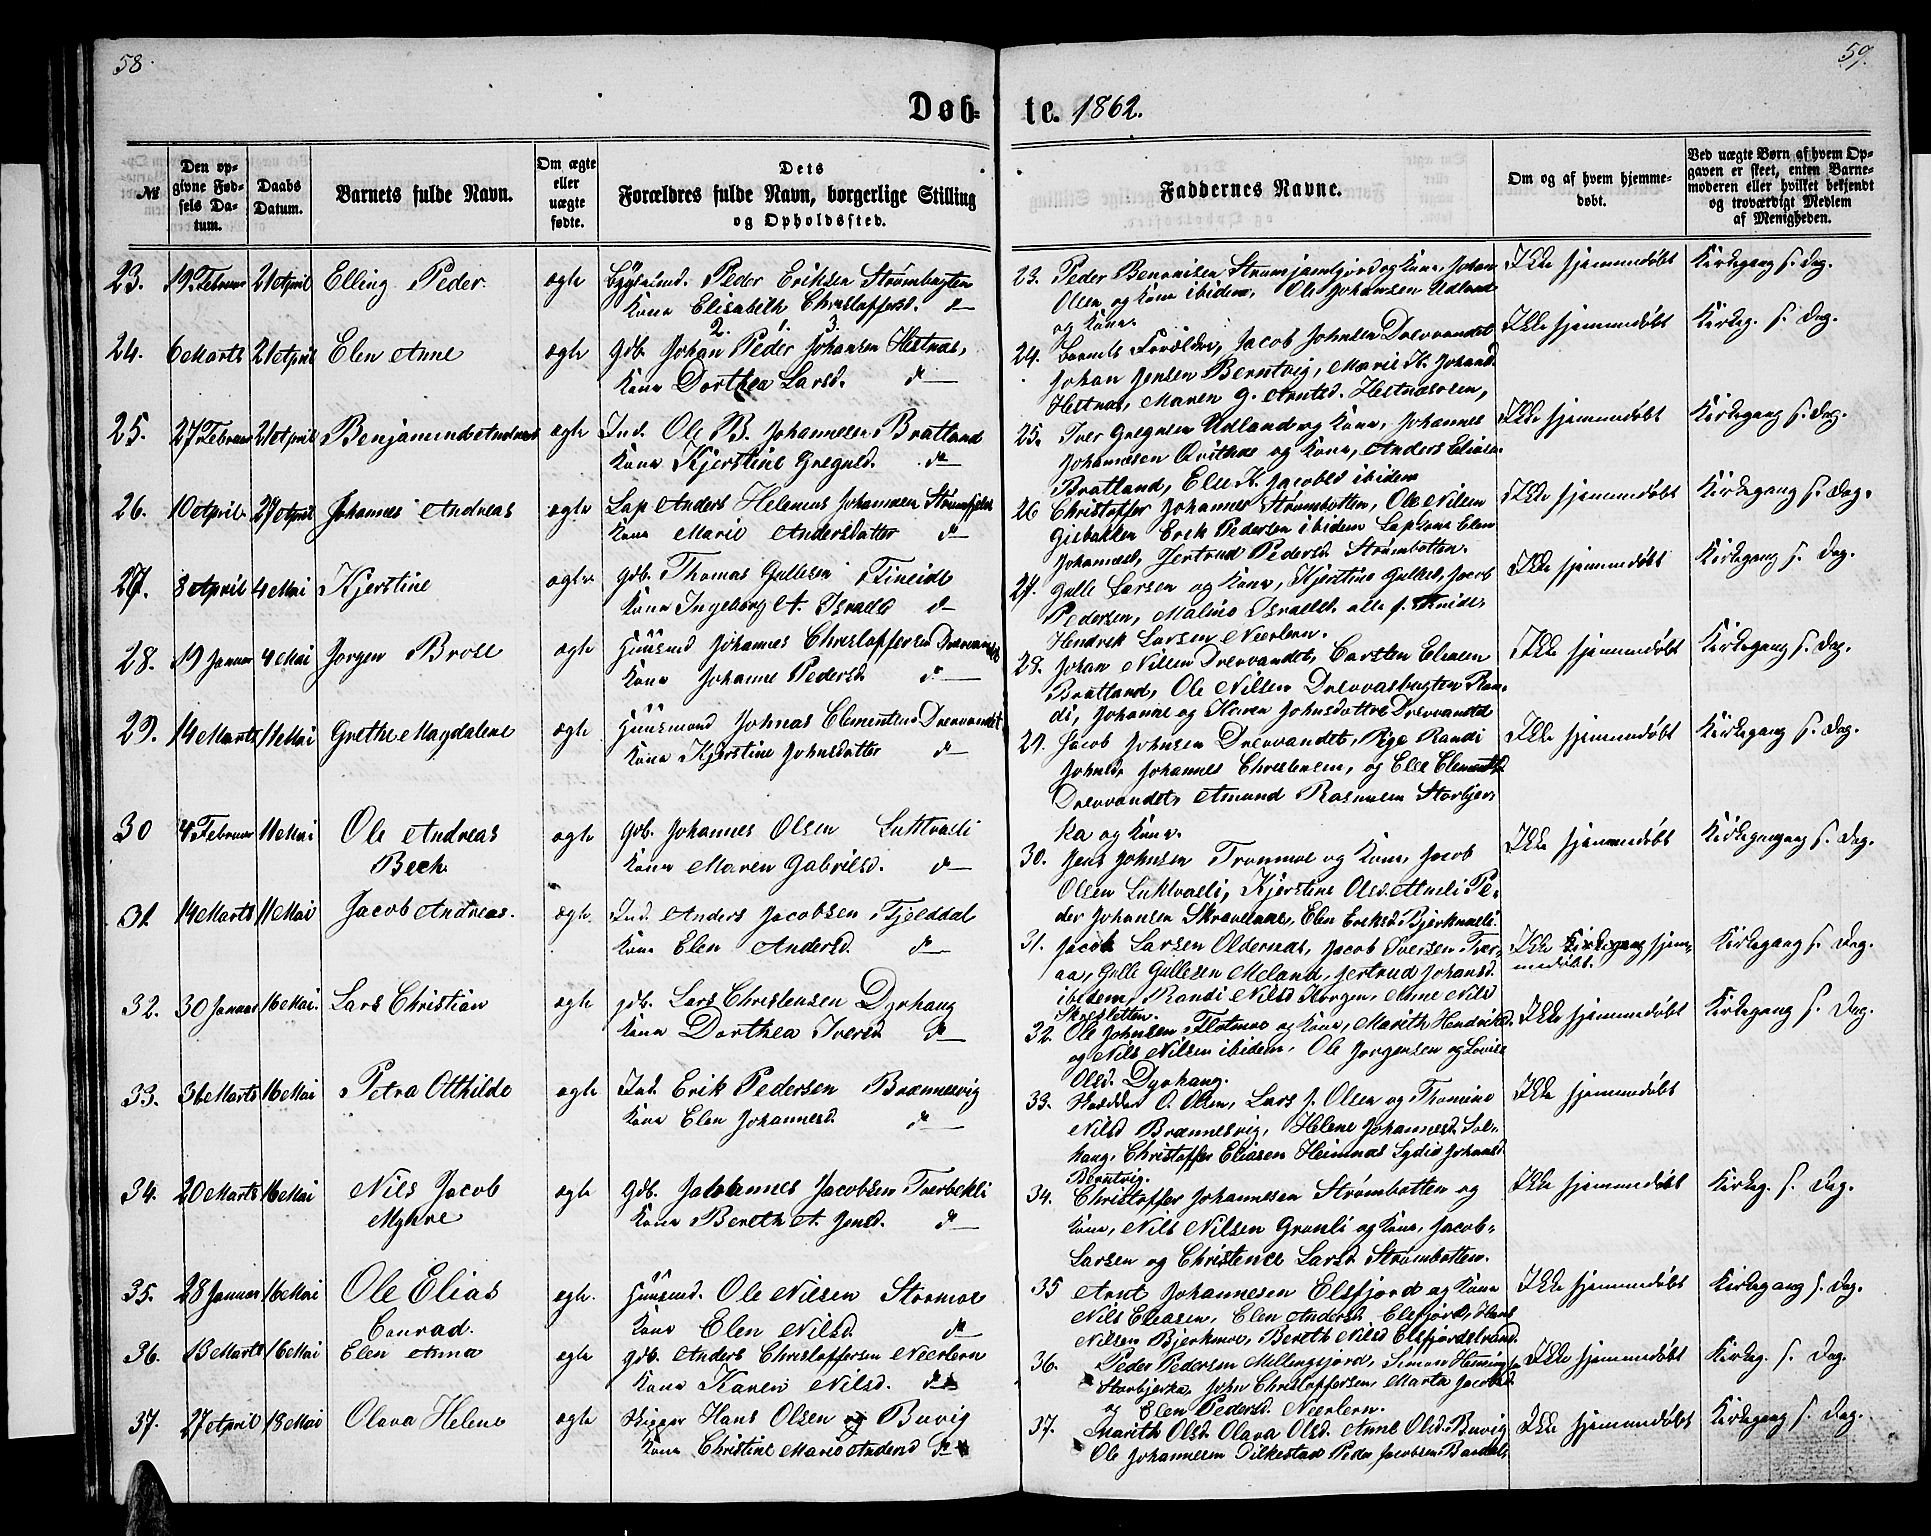 58.
59.
Døb-
te. 1862.
№
Den op-
givne Fød-
sels Da-
tum.
Daabs
Datum.
Barnets fulde Navn.
Om ægte
eller
uægte
fødte.
Dets
Forældres fulde Navn, borgerlige Stilling
og Opholdssted.
Faddernes Navne.
Om og af hvem hjemme-
døbt.
Ved uægte Børn af hvem Op-
gaven er skeet, enten Barne-
moderen eller hvilket bekjendt
og troværdigt Medlem
af Menigheden.
23. 19. Februar 21 April Elling Peder ægte Peder Eriksen Strømbugten
Kone Elisabeth Christoffersd. do
23. Peder Ikke hjemmedøbt Kirkegang s. Dag.
Olsen og Kone ibidem, Ole Johansen Udland
og Kone.
24. 6 Marts 21 April Elen Anne ægte Gdb. Johan Peder Johansen Hestnæs,
2. 1. 3.
Kone Dorthea Larsd. do
24. Barnets Forældre, Jacob Johnsen Drevvandet Ikke hjemmedøbt Kirkeg. s. Dag.
Johan Jensen Berntvig, Marie K. Johansd.
Hestnæs, Maren G. Arntsd. Hestnæsoren,
25. 27 Februar 21 April Benjamin Andreas ægte Ind. Ole B. Johannesen Bratland
Kone Kjerstine Gregusd. do
25. Iver Gregusen Udland og Kone, Johannes Ikke hjemmedøbt Kirkegang s. Dag.
Johannesen Qvitnæs og Kone, Anders Eliasen
Bratland, Else K. Jacobsd ibidem
26. 10 April 27 April Johannes Andreas ægte Lap Anders Helenus Johannesen
Kone Marie Andersdatter do
26 Christoffer Johannes Strømbotten, Ole Nilsen Ikke hjemmedøbt Kirkegang s. Dag.
Gisbakken Erik Pedersen ibidem Lapkone Elen
Johannesd, Jertrud Pedersd Strømbotten.
27. 8 April 4 Mai Kjerstine ægte Gdb. Thomas Gullesen Fineide
Kone Ingeborg A. Israelsd do
27. Gulle Larsen og Kone, Kjerstine Gullesd, Jacob Ikke hjemmedøbt Kirkegang s. Dag.
Pedersen, Maline Israelsd. alle f. Fineide,
Hendrik Larsen Neerlern.
28. 19 Januar 4 Mai Jørgen Brose ægte Huusmd Johannes Christoffersen Drevvandet
Kone Johanne Pedersd do
28. Johan Nilsen Drevvandet, Carsten Eliasen Ikke hjemmedøbt Kirkegang s. Dag.
Bratland, Ole Nilsen Drevvasbugten Ran-
di, Johanne og Karen Johnsdøttre Drevvandet
29. 14 Marts 11 Mai Grethe Magdalene ægte Huusmand Johnas Clementsen Drevvandet
Kone Kjerstine Johnsdatter do
29. Jacob Johnsen Drevvandet, Pige Randi Ikke hjemmedøbt Kirkegang s. Dag.
Johnsd, Johannes Christensen, og Else Clementsd
Drevvandet, Amund Rasmusen Storbjer-
ka og Kone.
30 4 Februar 11 Mai Ole Andreas ægte Gdb. Johannes Olsen Luktvasli
Bech Kone Maren Gabrilsd. do
30. Jens Johnsen Trommoe og Kone, Jacob Ikke hjemmedøbt Kirkegang s. Dag.
Olsen Luktvasli, Kjerstine Olsd. Pe-
der Johansen Skravelaae, Elen Eriksd. Bjerknæsli
31. 14 Marts 11 Mai Jacob Andreas. ægte Ind. Anders Jacobsen Fjelddal
Kone Elen Andersd. do
31. Jacob Larsen Oldernæs, Jacob Iversen Tver- Ikke Kirkegang hjem- Kirkegang s. Dag.
medøbt.
aa, Gulle Gullesen Meland, Jertrud Johansd.
ibidem, Randi Nilsd Korgen, Anne Nilsd
32. 30 Januar 16 Mai. Lars Christian ægte Gdb. Lars Christensen Dyrhaug
Kone Dorthea Iversd do
32. Ole Johnsen Flotmoe og Kone, Marith Hendriksd. Ikke hjemmedøbt Kirkegang s. Dag.
og Nils Nilsen ibidem, Ole Jørgensen og Lovise
Olsd. Dyrhaug.
33. 3 Marts 16 Mai Petra Otthilde ægte Ind. Erik Pedersen Brænnesvig
Kone Elen Johannesd. do
33. O. Olsen, Lars J. Olsen og Thomine Ikke hjemmedøbt
Nilsd Brænnesvig, Helene Johannesd. Sol-
haug, Christoffer Eliasen Heimnæs Lydia Johansd
Berntvig.
34. 20 Marts 16 Mai Nils Jacob ægte Gdb. Johannes Jacobsen Tverbekli
Myhre Kone Bereth A. Jensd. do
34. Christoffer Johannesen Strømbotten og Ikke hjemmedøbt Kirkeg. s. Dag.
Kone, Nils Nilsen Grønli og Kone, Jacob
Larsen og Christence Larsd. Strømbotten.
35. 28 Januar 16 Mai Ole Elias ægte. Huusmd. Ole Nilsen Stormoe
Conrad. Kone Elen Nilsd. do
35 Arnt Johannesen Elsfjord og Kone Ikke hjemmedøbt Kirkegang s. Dag.
Nils Eliasen, Elen Andersd. Elsfjord, Hans
Nilsen Bjerkmoe, Bereth Nilsd Elsfjordstrand.
36. 13 Marts 16 Mai Elen Anna ægte Gdb. Anders Christoffersen Neerlern
Kone Karen Nilsd. do
36. Peder Pedersen Millingsjord, Simon Ikke hjemmedøbt Kirkeg. s. Dag.
Storbjerka, John Christoffersen, Marta Jacobsd.
og Elen Pedersd. Neerlern.
37. 27 April 18 Mai Olava Helene ægte Skipper Hans Olsen Buvig
Kone Christine Marie Andersd do
37. Marith Olsd Olava Olsd. Anne Olsd. Buvig Ikke hjemmedøbt Kirkegang s. Dag.
Ole Johannesen Dilkestad Peder Jacobsen Bardal.